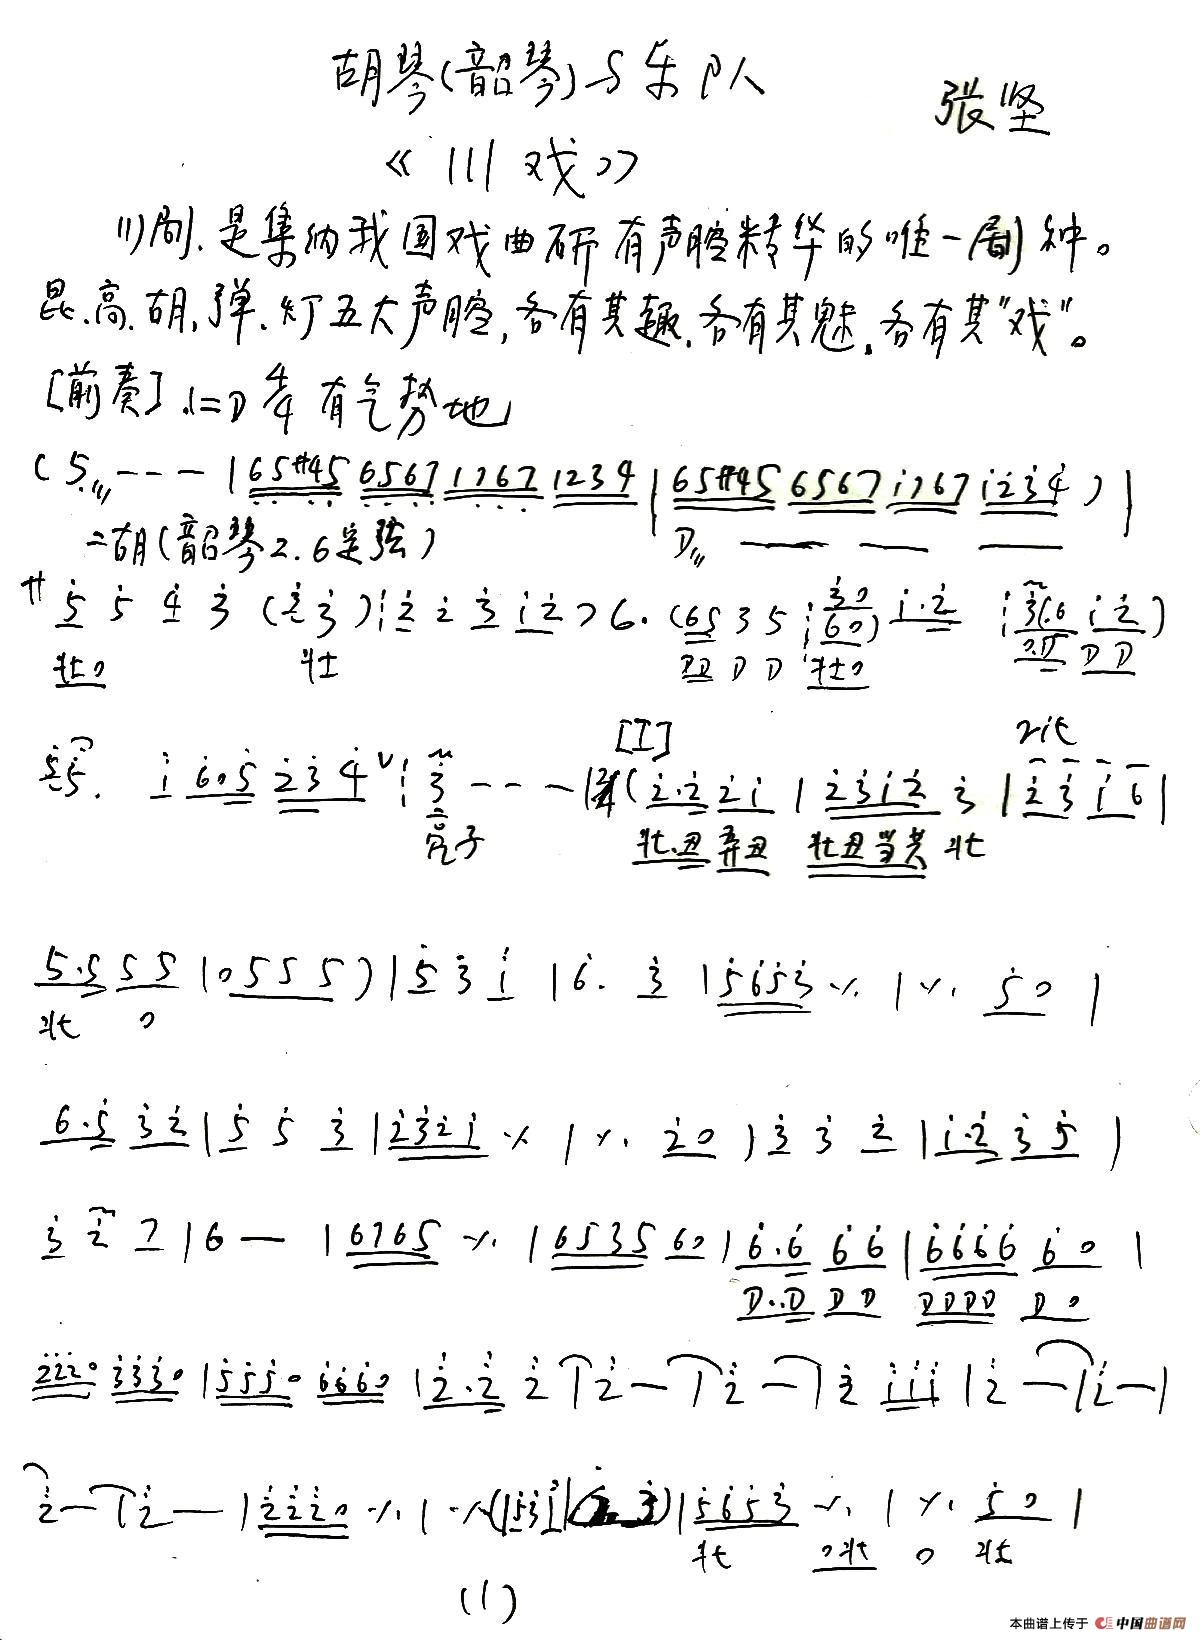 胡琴(韶琴)与乐队
张坚
《川戏》
川剧.是集纳我国戏曲所有声腔精华的唯一剧种。
昆.高.胡.弹.灯五大声腔,各有其趣.各有其魅.各有其"戏"。
[前奏].1=D 4/4 有气势地
(5 - - - | 65#45 6567 1767 1234 | 65#45 6567 1767 1234 ) |
二胡(韶琴2.6定弦) D
サ 5 5 4 3 (2 3) 2 2 3 1 2 7 6. (65 3 5 30 60) 1.2 3(.6 1 2)
壮0 壮 DD D D 壮0 0.D D D
[I] rit
55. 1 60 5 2 3 4 ∨ 3 - - - | 2/4 (2.2 2 1 | 2312 3 | 2 3 1 6 |
亮子 壮.丑 弄丑 壮丑当共 壮
5.5 5 5 | 0 5 5 5 ) | 5 3 1 | 6. 3 | 5653 ٪ | ٪ 5 0 |
壮 0
6.5 3 2 | 5 5 3 | 2321 ٪ | ٪ 2 0 | 3 3 2 | 1.2 3 5 |
3 2 7 | 6 — | 6765 ٪ | 6535 60 | 6.6 6 6 | 6666 6 0 |
D..D D D DDDD D 0
2220 3330 | 5550 6660 | 2.2 2 | 2 — | 2 — | 2 111 | 2 — | 2 — |
2 — | 2 — | 2220 ٪ | ٪ (| 5 3 1 | | 5653 ٪ | ٪ 5 0 |
壮 0壮 0 壮
(1)
本曲谱上传于 中国曲谱网